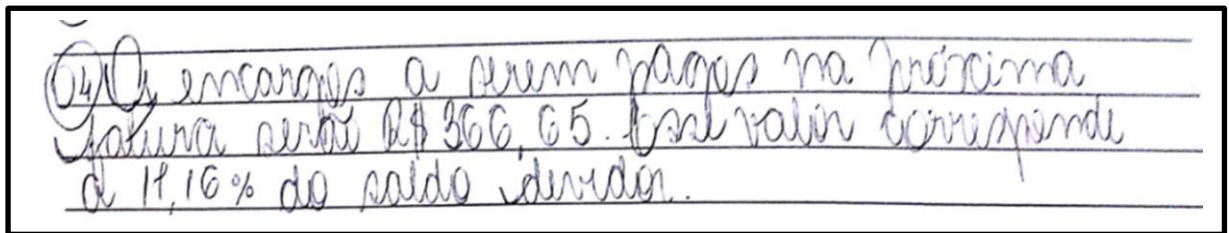 04) Os encargos a serem pagos na próxima
fatura serão R$ 366,65. Esse valor corresponde
a 11,16% do saldo devedor.